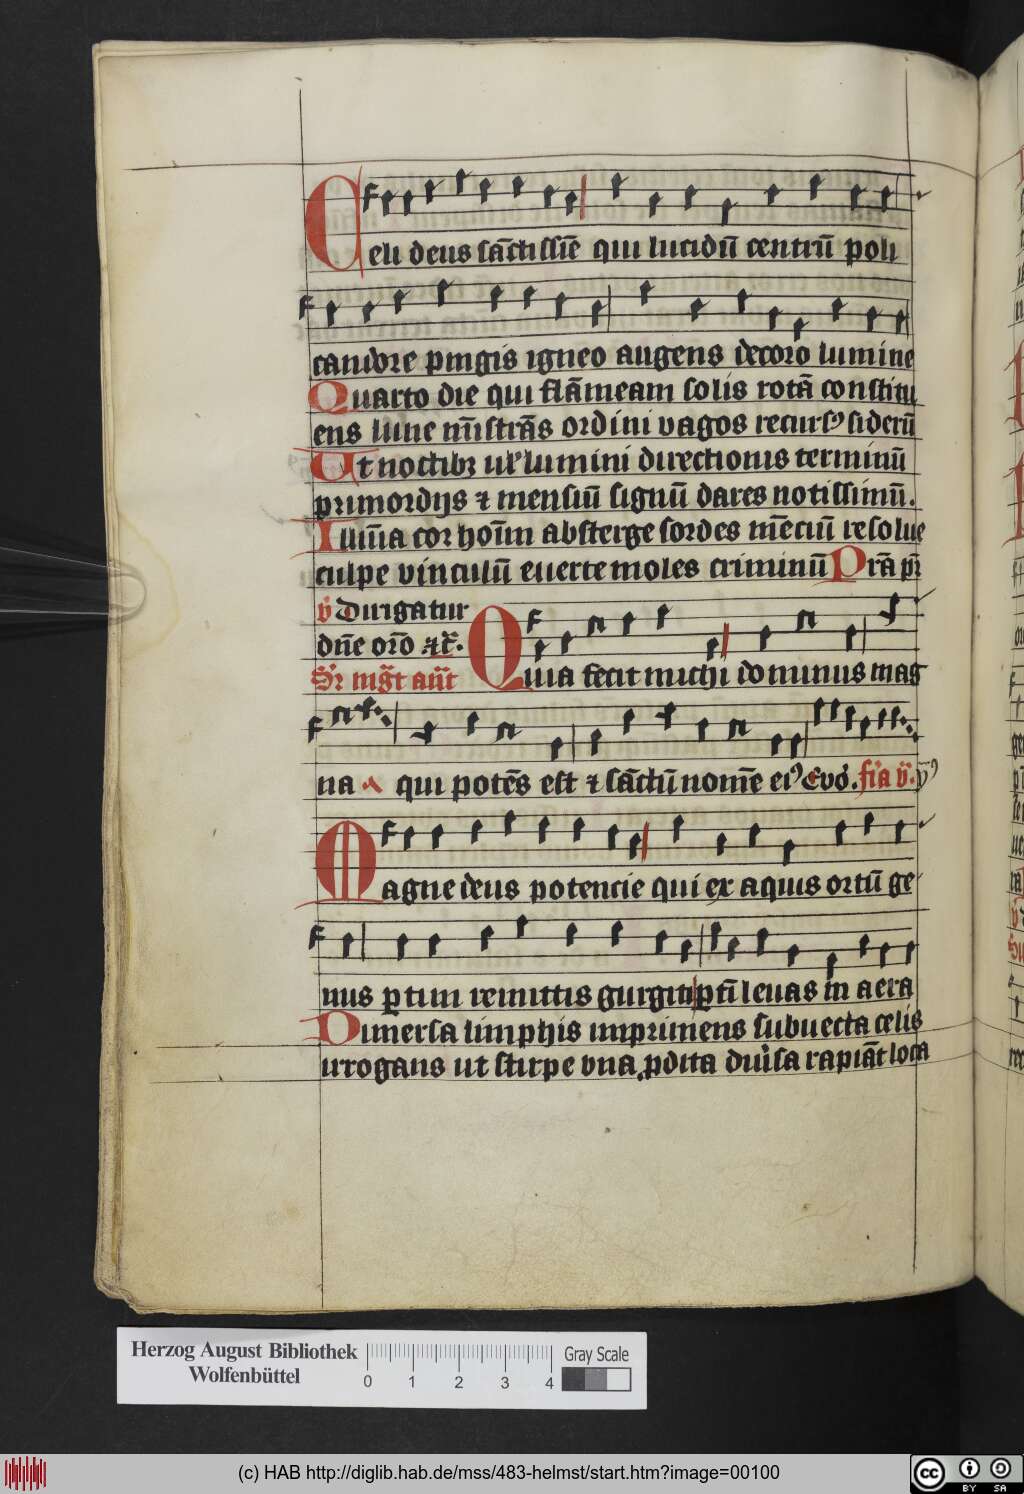 Celi deus sāctissīe qui lucidū centrū poli
candore pingis igneo augens decoro lumine
Quarto die qui flāmeam solis rotā constitu
ens lune m̄istrās ordini vagos recursꝰ siderū
Ut noctibꝫ ul̓ lumini directionis terminū
primordijs ⁊ mensiū signū dares notissimū.
Illum̄a cor hoīm absterge sordes mēciū resolue
culpe vinculū euerte moles criminū Prā pr̄
v̓ Dirigatur
dn̄e oro ⁊c̄.
Sr mgt̄ an̄t
Quia fecit michi dominus mag
na qui potēs est ⁊ sāctū nomē eiꝰ Evo.
Magne deus potencie qui ex aquis ortū ge
nus ꝑtim remittis gurgiti ꝑtī leuas in aera
Dimersa limphis imprimens subuecta celis
irrogans ut stirpe vna ꝓdita diu̓sa rapiāt loca
Herzog August Bibliothek
Wolfenbüttel
0 1 2 3 4
Gray Scale
(c) HAB http://diglib.hab.de/mss/483-helmst/start.htm?image=00100
cc BY SA